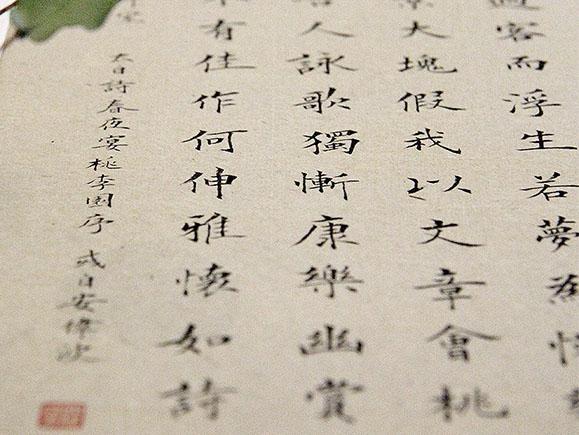 過客而浮生若夢為
景大塊假我以文章會桃
吾人詠歌獨慚康樂幽賞
不有佳作何伸雅懷如詩
太白詩春夜宴桃李園序